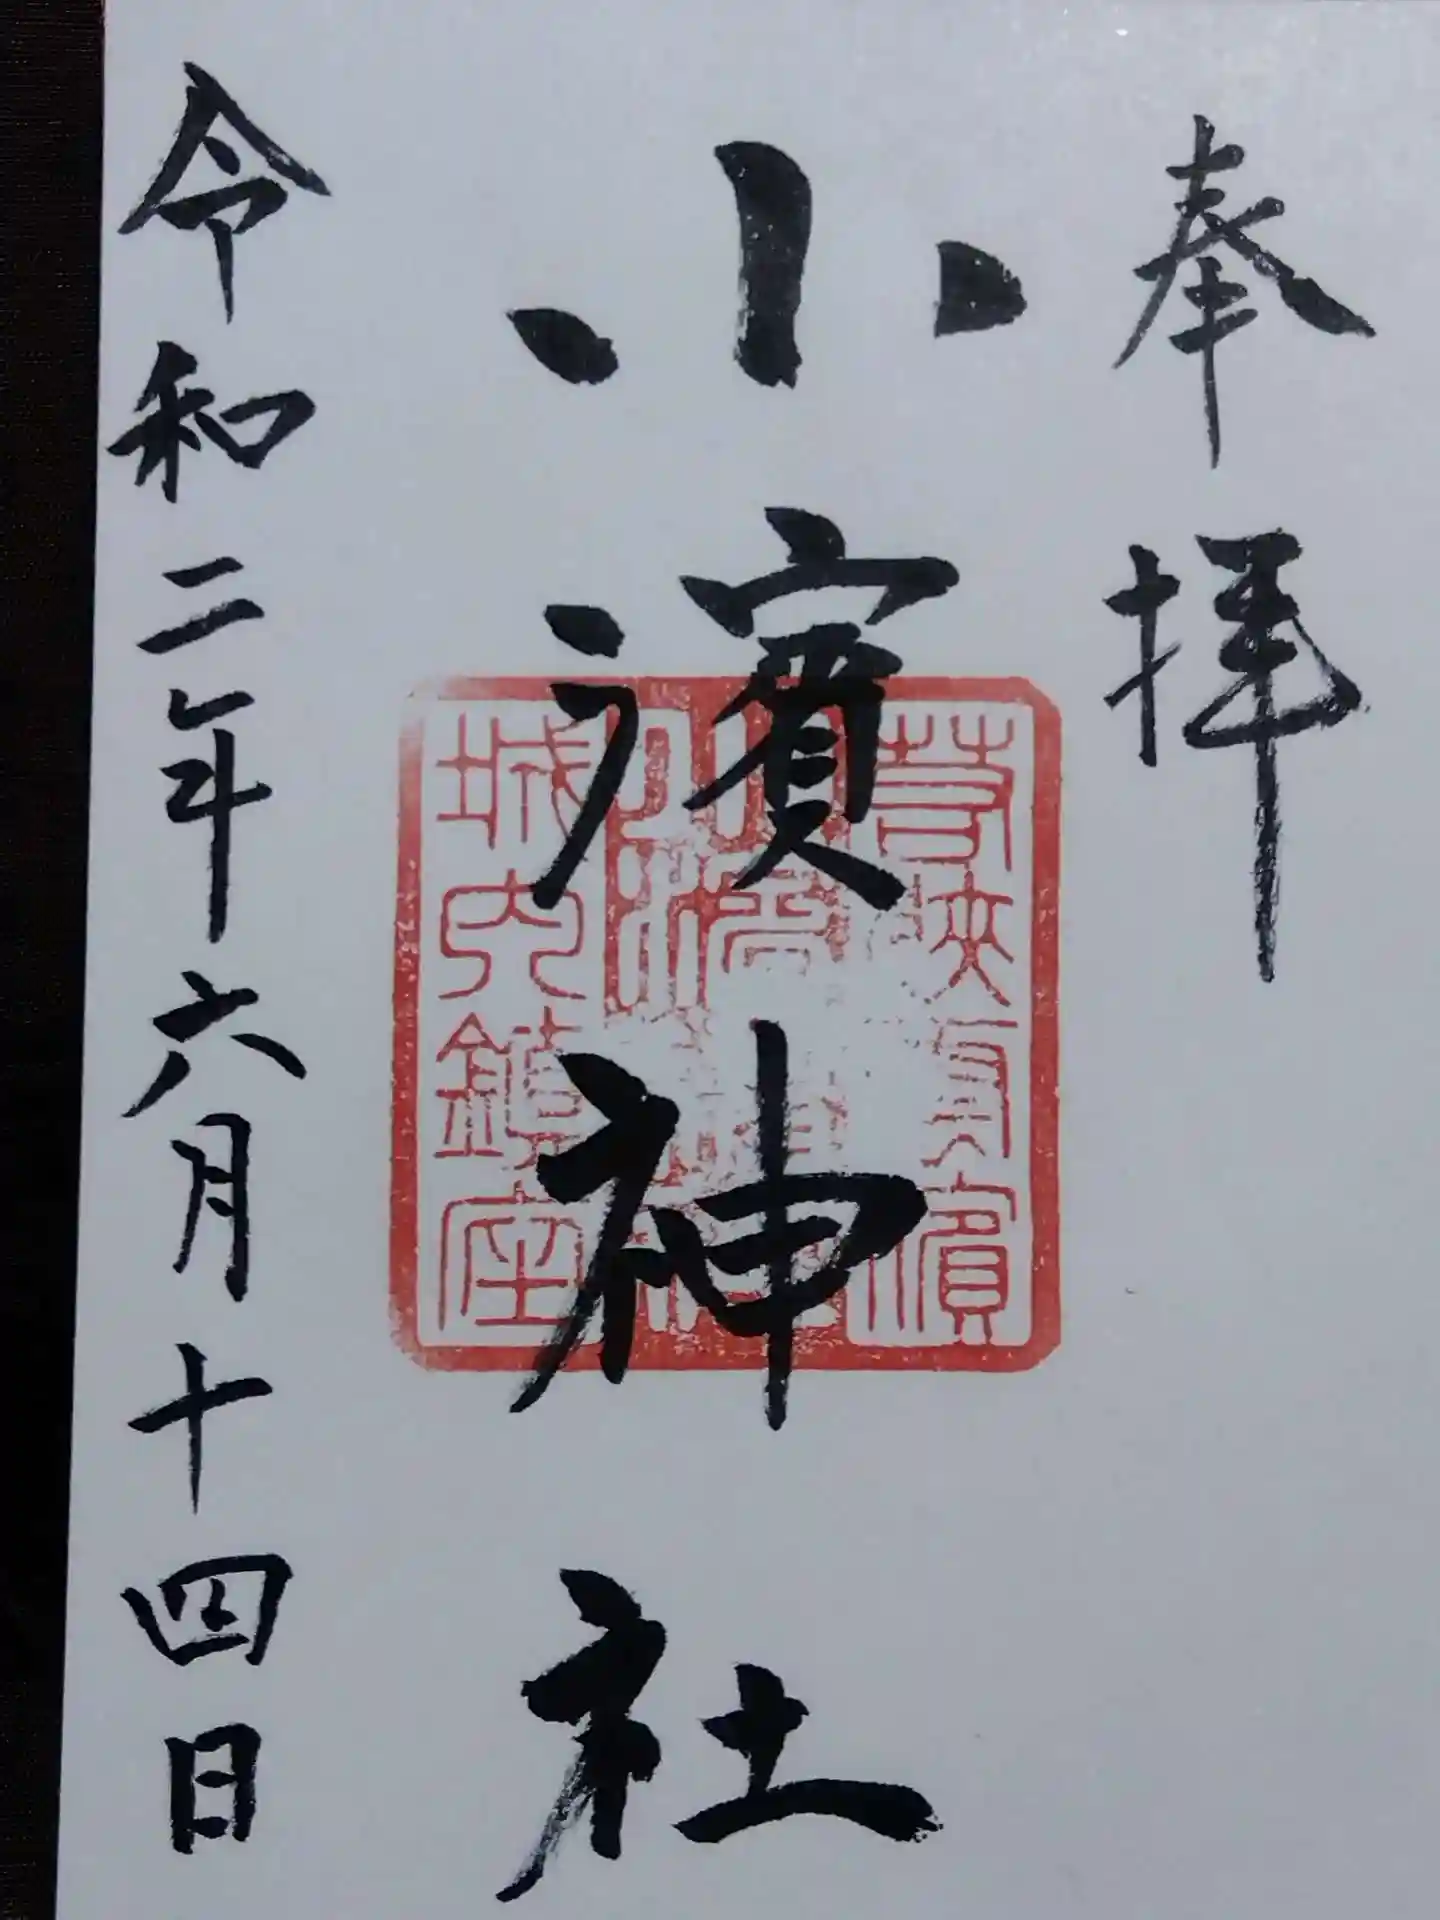 奉拝
小濱神社
令和二年六月十四日
若狭国濱
城内鎮座